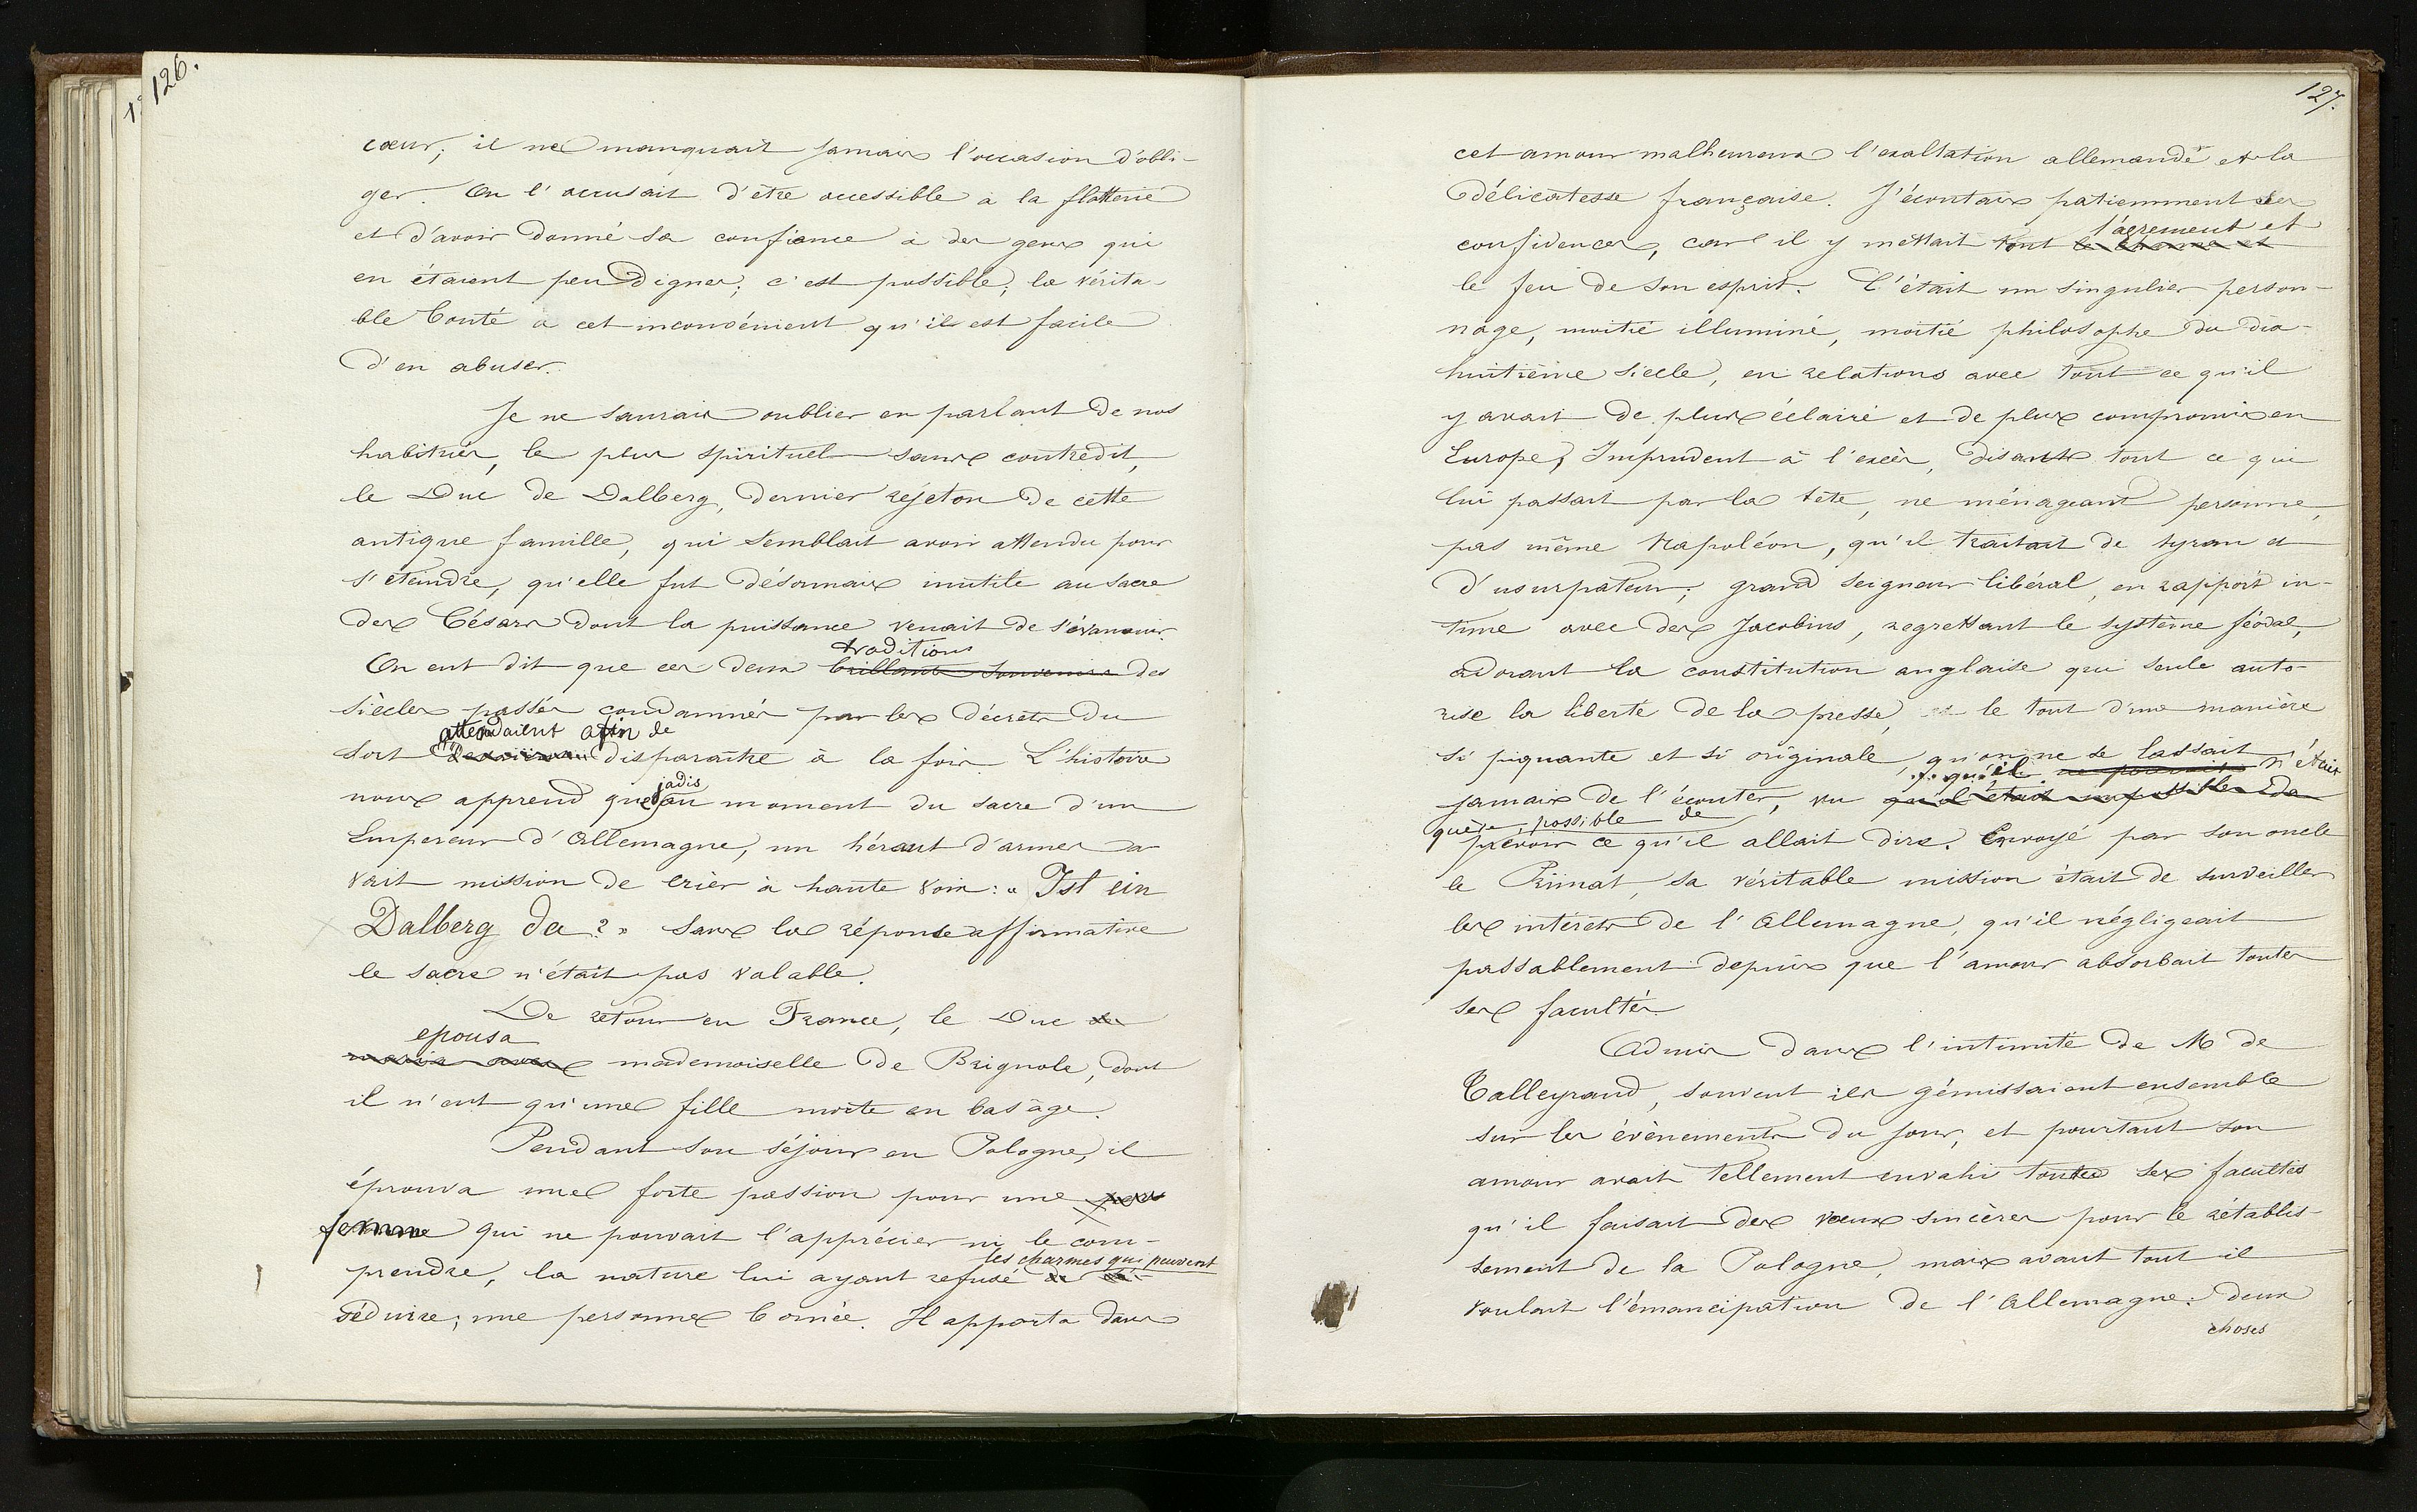 126.
cœur; il ne manquait jamais l'occasion d'obli-
ger. On l'accusait d'être accessible à la flatterie
et d'avoir donné sa confiance à des gens qui
en étaient peu dignes; c'est possible; la vérita-
ble bonté a cet inconvénient qu'il est facile
d'en abuser.
Je ne saurais oublier en parlant de nos
habitués, le plus spirituel sans contredit,
le Duc de Dalberg, dernier rejeton de cette
antique famille, qui semblait avoir attendu pour
s'éteindre, qu'elle fut désormais inutile au sacre
des Césars dont la puissance venait de s'évanouir.
traditions
On eut dit que ces deux brillants souvenirs des
siècles passés condamnés par les décrets du
attendaient afin de
sort devaient disparaître à la fois. L'histoire
jadis
nous apprend que au moment du sacre d'un
Empereur d'Allemagne, un héraut d'armes a-
vait mission de crier à haute voix: « Ist ein
Dalberg da? » Sans la réponse affirmative
le sacre n'était pas valable.
De retour en France, le Duc se
epousa
maria avec mademoiselle de Brignole, dont
il n'eut qu'une fille morte en bas âge.
Pendant son séjour en Pologne, il
éprouva une forte passion pour une
femme qui ne pouvait l'apprécier ni le com-
les charmes qui peuvent
prendre, la nature lui ayant refusé de
séduire; une personne bornée. Il apporta dans
127.
cet amour malheureux l'exaltation allemande et la
délicatesse française. J'écoutais patiemment ses
l'agrement et
confidences, car il y mettait tout le charme et
le feu de son esprit. C'était un singulier person-
nage, moitié illuminé, moitié philosophe du dix-
huitième siècle, en relations avec tout ce qu'il
y avait de plus éclairé et de plus compromis en
Europe; Imprudent à l'excès, disant tout ce qui
lui passait par la tête, ne ménageant personne,
pas même Napoléon, qu'il traitait de tyran et
d'usurpateur; grand seigneur libéral, en rapport in-
time avec des Jacobins, regrettant le système féodal,
adorant la constitution anglaise qui seule auto-
rise la liberté de la presse, le tout d'une manière
si piquante et si originale, qu'on ne se lassait
qu'il ne pouvait n'étais
jamais de l'écouter, vu qu'il était impossible de
guère possible de
prévoir ce qu'il allait dire. Envoyé par son oncle
le Primat, sa véritable mission était de surveiller
les intérêts de l'Allemagne, qu'il négligeait
passablement depuis que l'amour absorbait toutes
ses facultés.
Admis dans l'intimité de M de
Talleyrand, souvent ils gémissaient ensemble
sur les évènements du jour, et pourtant son
amour avait tellement envahi toutes ses facultés
qu'il faisait des vœux sincères pour le rétablis-
sement de la Pologne, mais avant tout il
voulait l'émancipation de l'Allemagne: deux
choses